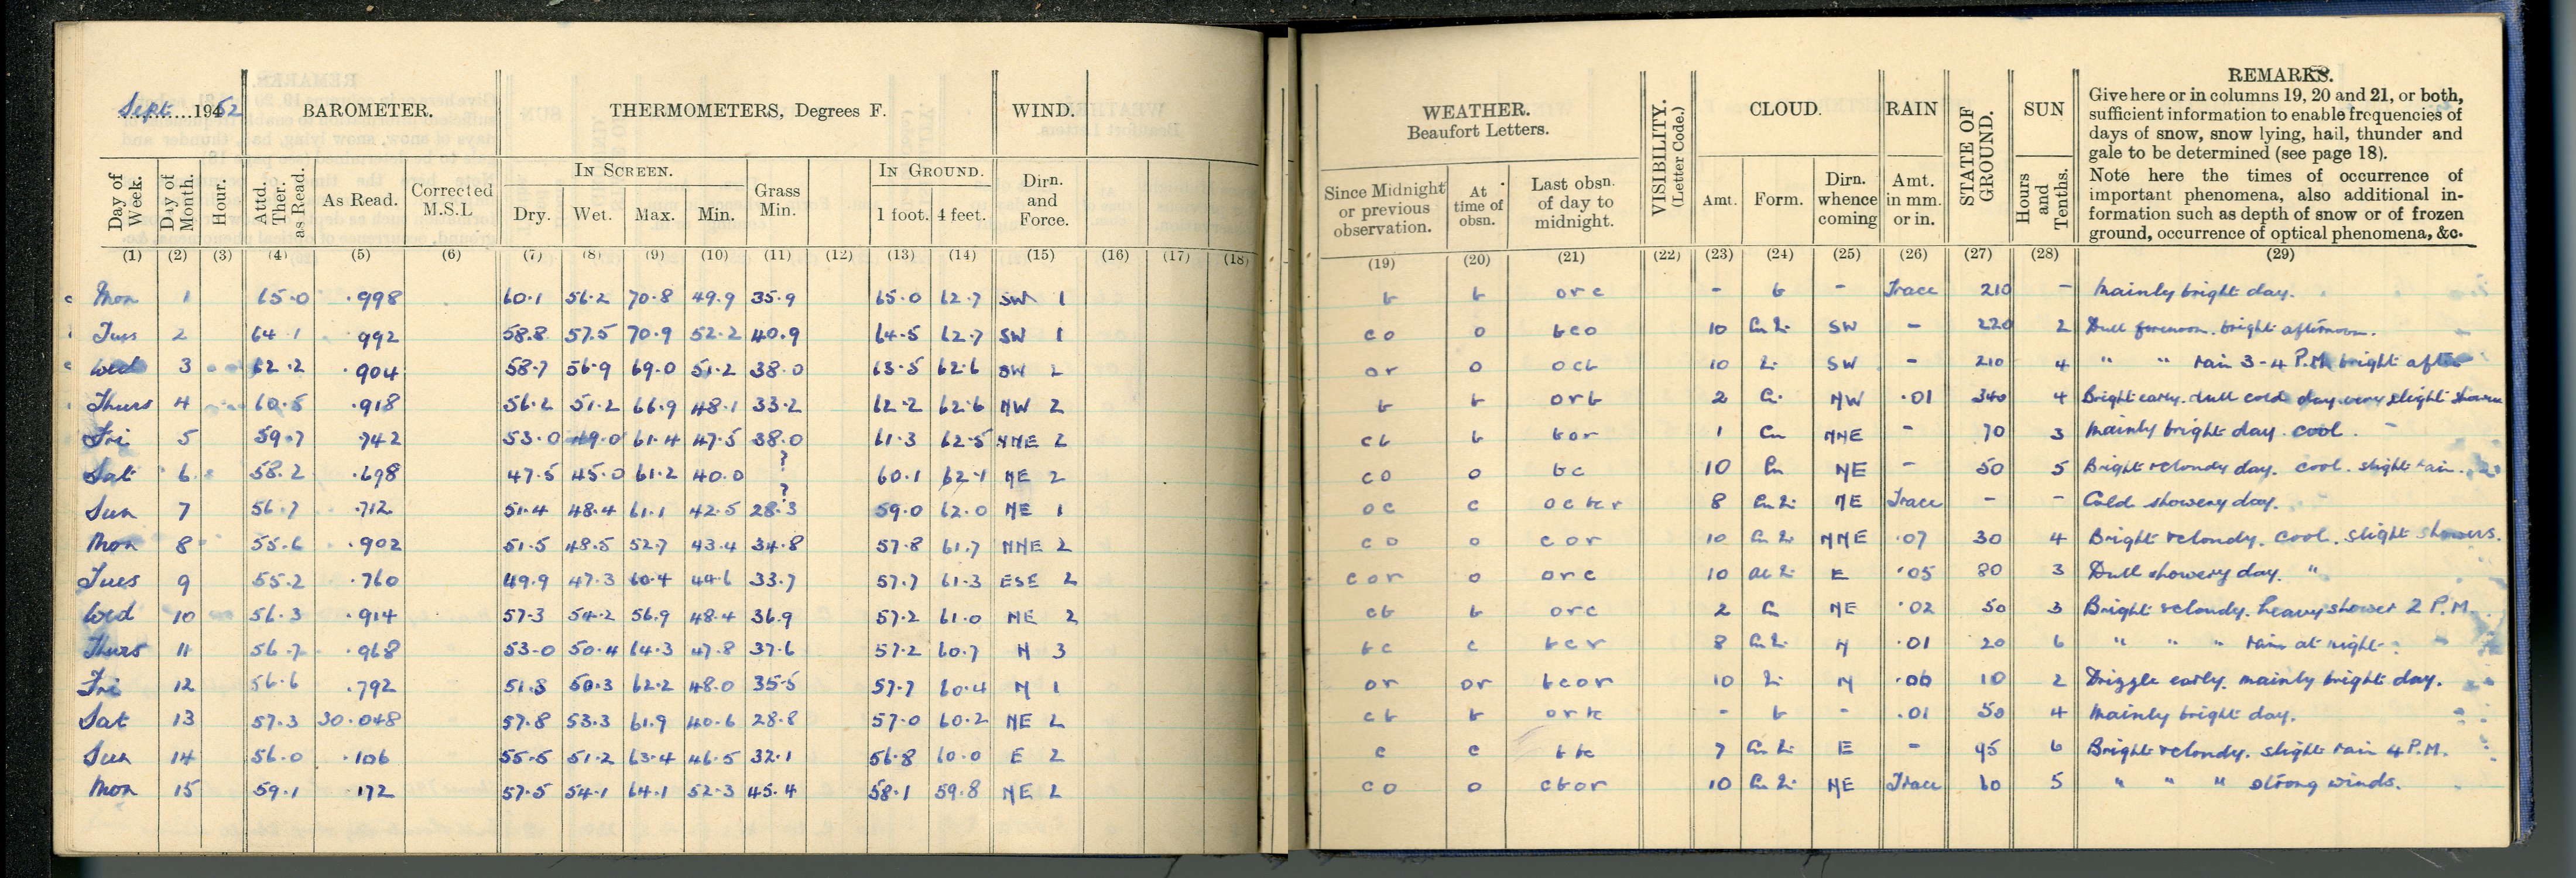 Sept. 1952 BAROMETER. THERMOMETERS, Degrees F. WIND.
Day of Week. Day of Month. Hour. Attd. Ther. as Read. As Read. Corrected M.S.L IN SCREEN. Dry. Wet. Max. Min. Grass Min. IN GROUND. 1 foot. 4 feet. Dirn. and Force.
(1) (2) (3) (4) (5) (6) (7) (8) (9) (10) (11) (12) (13) (14) (15) (16) (17) (18)
Mon 1 65.0 .998 60.1 56.2 70.8 49.9 35.9 65.0 62.7 SW 1
Tues 2 64.1 .992 58.8 57.5 70.9 52.2 40.9 64.5 62.7 SW 1
Wed 3 62.2 .904 58.7 56.9 69.0 51.2 38.0 63.5 62.6 SW 2
Thurs 4 60.5 .918 56.2 51.2 66.9 48.1 33.2 62.2 62.6 NW 2
Fri 5 59.7 .742 53.0 49.0 61.4 47.5 38.0 61.3 62.5 NNE 2
Sat 6 58.2 .698 47.5 45.0 61.2 40.0 ? 60.1 62.1 NE 2
Sun 7 56.7 .712 51.4 48.4 61.1 42.5 ? 28.3 59.0 62.0 NE 1
Mon 8 55.6 .902 51.5 48.5 52.7 43.4 34.8 57.8 61.7 NNE 2
Tues 9 55.2 .760 49.9 47.3 60.4 44.6 33.7 57.7 61.3 ESE 2
Wed 10 56.3 .914 57.3 54.2 56.9 48.4 36.9 57.2 61.0 NE 2
Thurs 11 56.7 .968 53.0 50.4 64.3 47.8 37.6 57.2 60.7 N 3
Fri 12 56.6 .792 51.8 50.3 62.2 48.0 35.5 57.7 60.4 N 1
Sat 13 57.3 30.048 57.8 53.3 61.9 40.6 28.8 57.0 60.2 NE 2
Sun 14 56.0 .106 55.5 51.2 63.4 46.5 32.1 56.8 60.0 E 2
Mon 15 59.1 .172 57.5 54.1 64.1 52.3 45.4 58.1 59.8 NE 2
WEATHER. Beaufort Letters. VISIBILITY. (Letter Code.) CLOUD. RAIN STATE OF GROUND. SUN REMARKS.
Since Midnight or previous observation. At time of obsn. Last obsn. of day to midnight. Amt. Form. Dirn. whence coming Amt. in mm. or in. Hours and Tenths.
Give here or in columns 19, 20 and 21, or both,
sufficient information to enable frequencies of
days of snow, snow lying, hail, thunder and
gale to be determined (see page 18).
Note here the times of occurrence of
important phenomena, also additional in-
formation such as depth of snow or of frozen
ground, occurrence of optical phenomena, &c.
(19) (20) (21) (22) (23) (24) (25) (26) (27) (28) (29)
b b orc - b - Trace 210 - Mainly bright day.
co o bco 10 Cu Li SW - 220 2 Dull forenoon. bright afternoon.
or o ocb 10 Li SW - 210 4 " " rain 3-4 P.M. bright after
b b orb 2 Ci NW .01 340 4 Bright early. dull cold day very slight shower
cb b bor 1 Cu NNE - 70 3 Mainly bright day. cool.
co o bc 10 Cu NE - 50 5 Bright & cloudy day. cool. slight rain.
oc c ocbcr 8 Cu Li NE Trace - - Cold showery day.
co o cor 10 Cu Li NNE .07 30 4 Bright & cloudy. cool. slight showers.
cor o orc 10 E .05 80 3 Dull showery day. "
cb b orc 2 NE .02 50 3 Bright & cloudy. heavy shower 2 P.M.
bc c bcr 8 Cu Li N .01 20 6 " " " rain at night.
or or bcor 10 Li N .06 10 2 Drizzle early. mainly bright day.
cb b - b - .01 50 4 Mainly bright day.
c c 7 Cu Li E - 95 6 Bright & cloudy. slight rain 4 P.M.
co o cbor 10 Cu Li NE Trace 60 5 " " " strong winds.